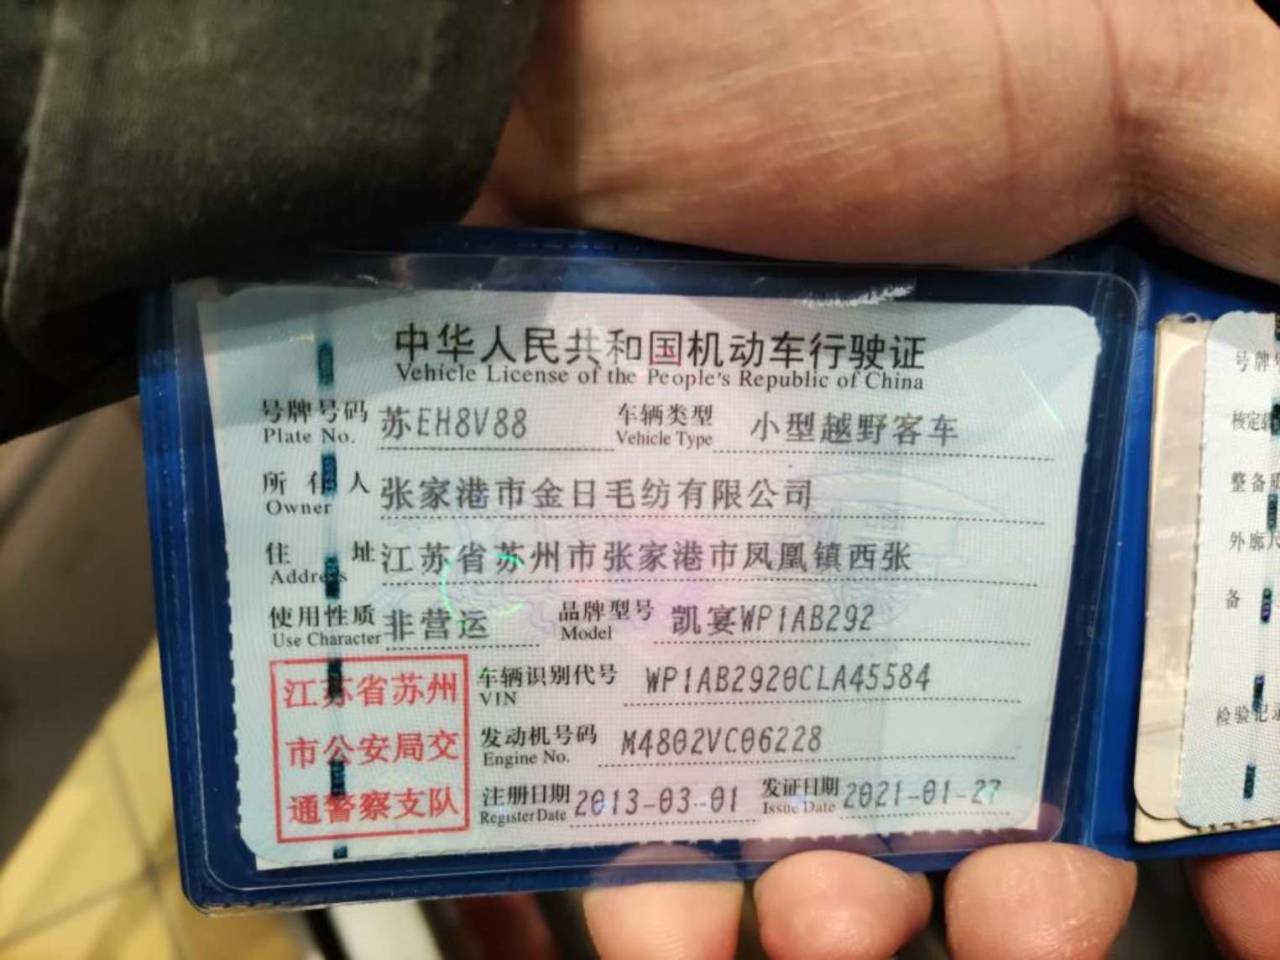 中华人民共和国机动车行驶证
Vehicle License of the People's Republic of China
号牌号码 苏EH8V88 车辆类型 小型越野客车
Plate No. Vehicle Type
所有人 张家港市金日毛纺有限公司
Owner
住址 江苏省苏州市张家港市凤凰镇西张
Address
使用性质 非营运 品牌型号 凯宴WP1AB292
Use Character Model
江苏省苏州
市公安局交
通警察支队
车辆识别代号 WP1AB2920CLA45584
VIN
发动机号码 M4802VC06228
Engine No.
注册日期 2013-03-01 发证日期 2021-01-27
Register Date Issue Date
号牌
核定载
整备质
外廓尺
备
检验记录